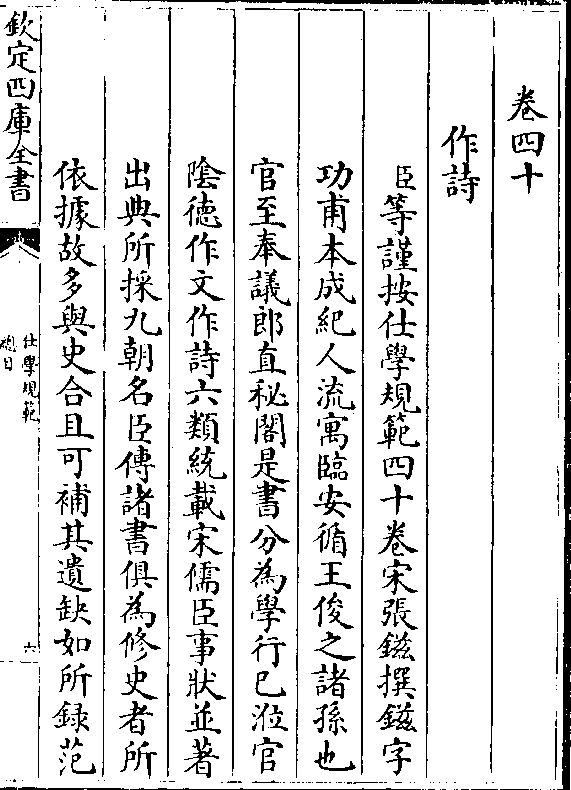 卷四十
作詩
臣等謹按仕學規範四十卷宋張鎡撰鎡字
功甫本成紀人流寓臨安循王俊之諸孫也
官至奉議郎直秘閣是書分為學行已涖官
陰德作文作詩六類統載宋儒臣事狀並著
出典所採九朝名臣傳諸書俱為修史者所
依據故多與史合且可補其遺缺如所録范
欽定四庫全書
仕學規範
總目
六